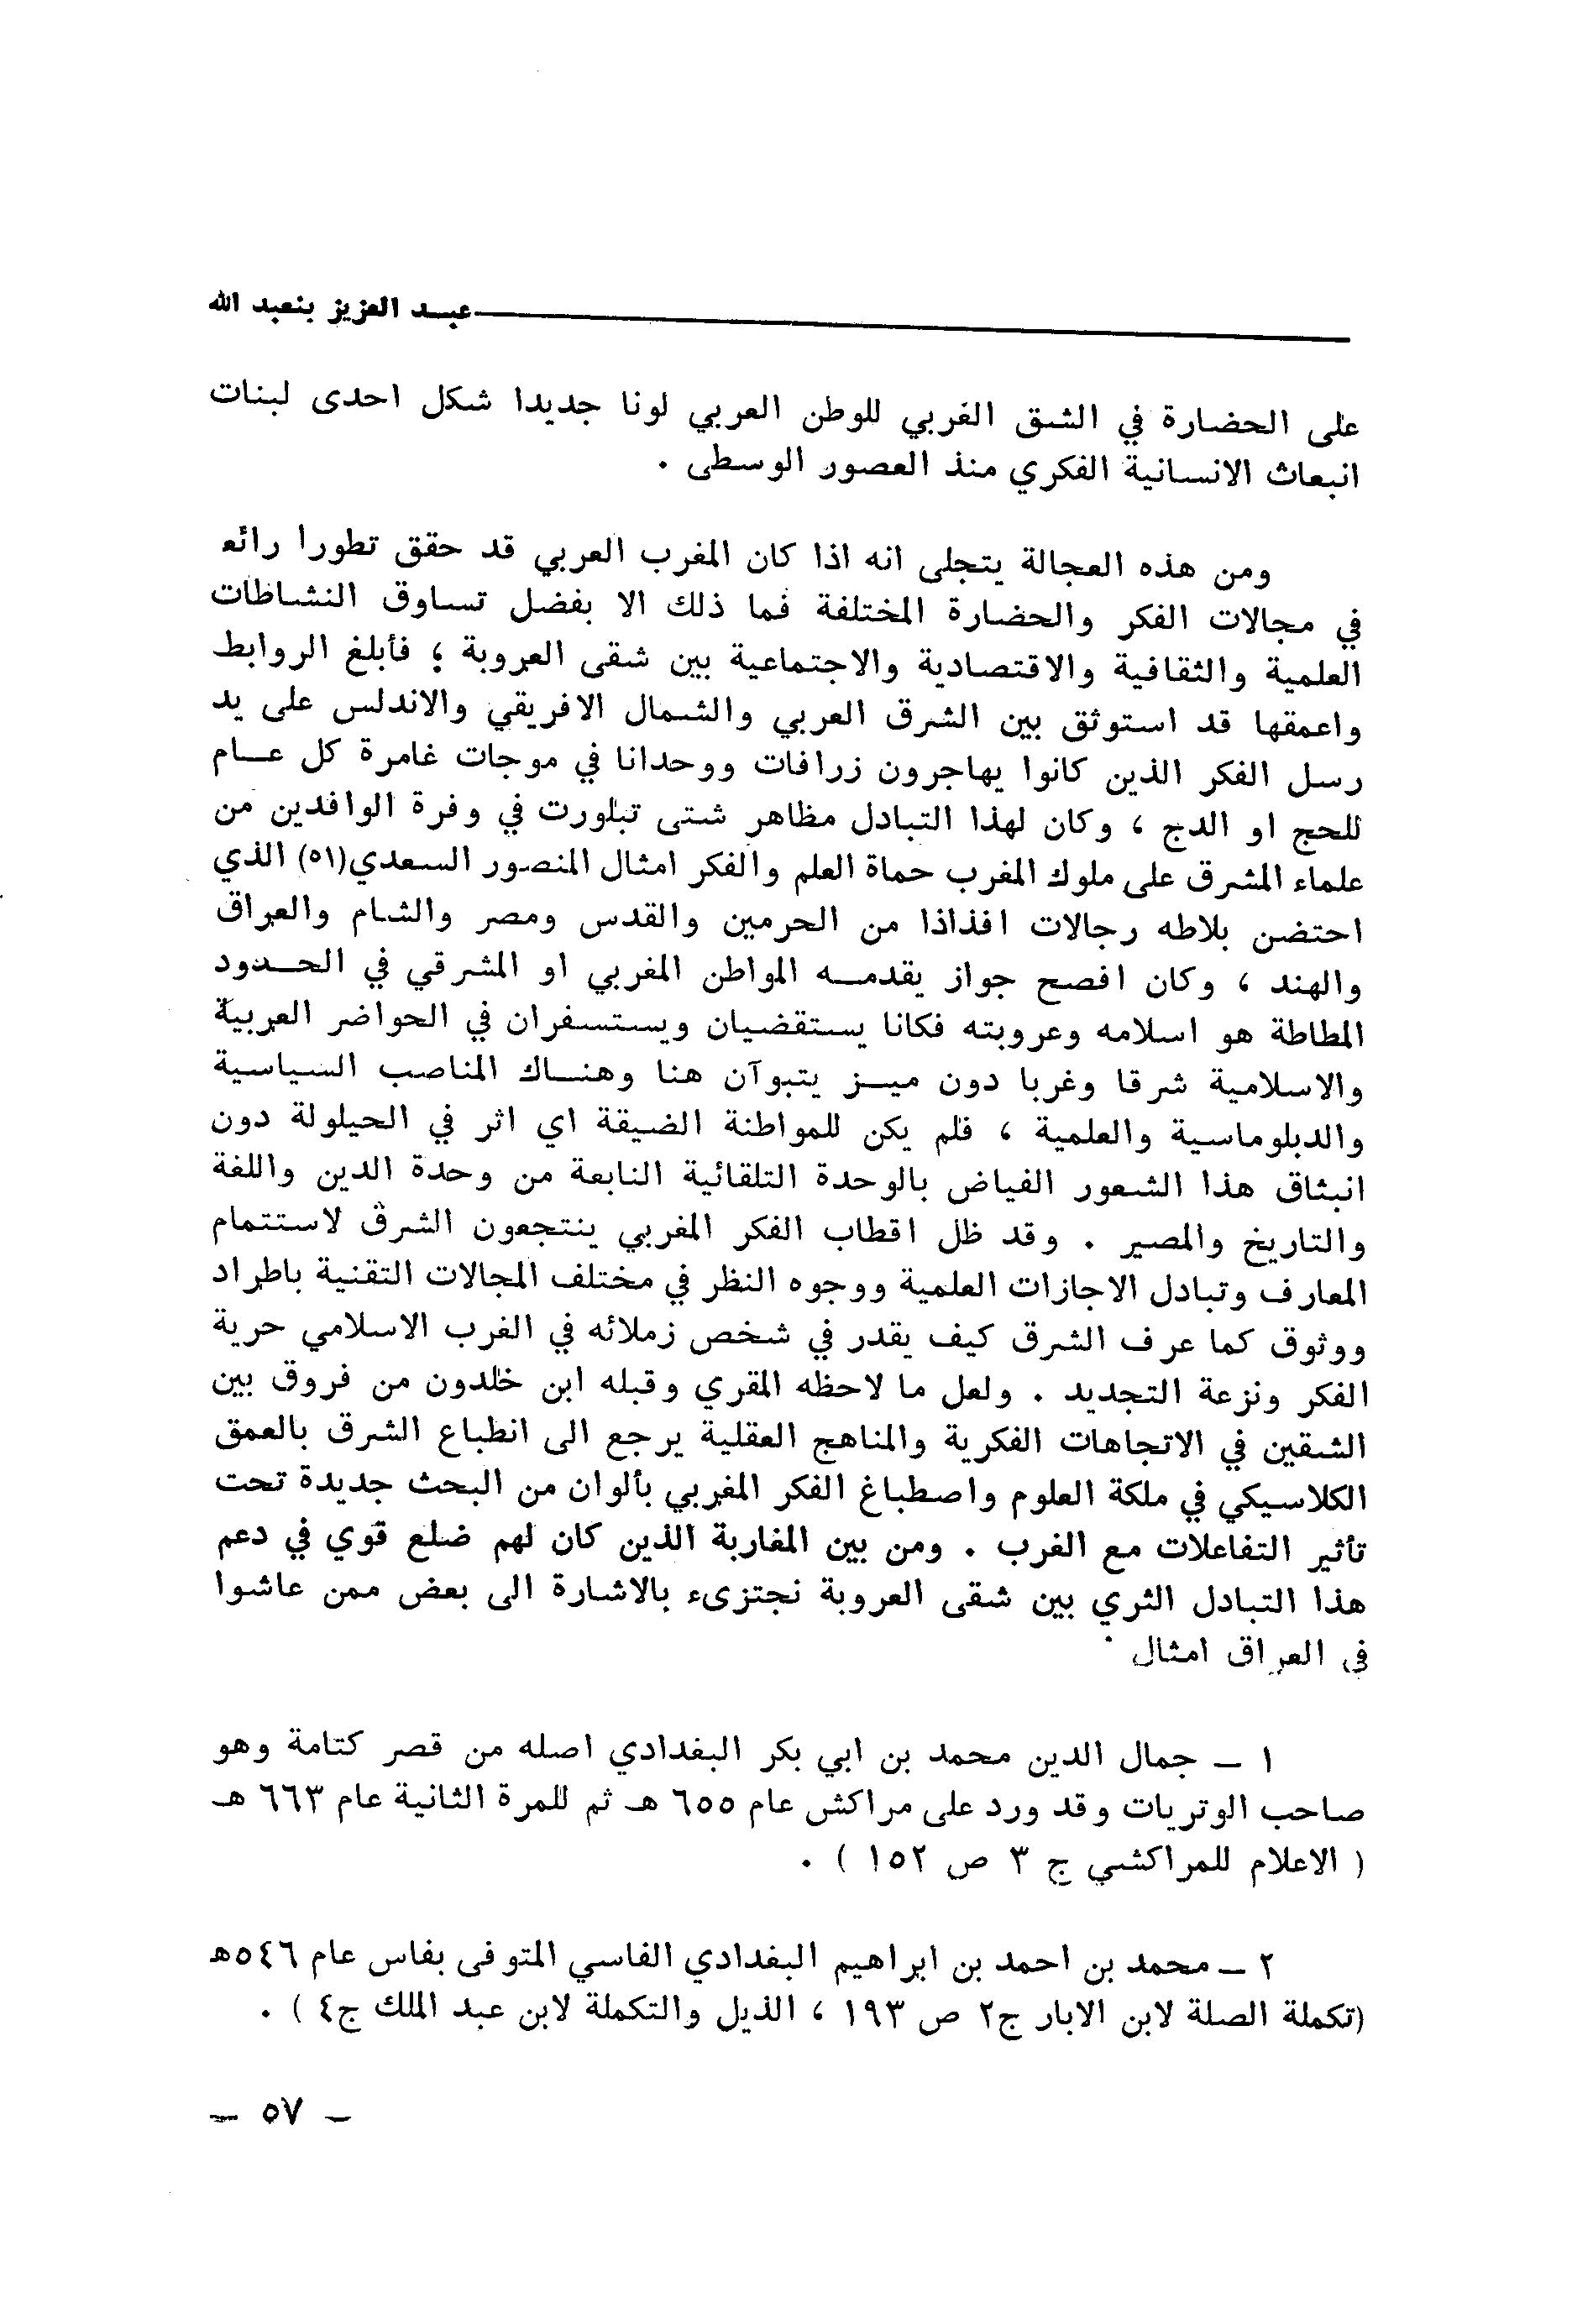 عبد العزيز بنعبد الله
على الحضارة في الشق الغربي للوطن العربي لونا جديدا شكل احدى لبنات
انبعاث الانسانية الفكري منذ العصور الوسطى .
ومن هذه العجالة يتجلى انه اذا كان المغرب العربي قد حقق تطورا رائع
في مجالات الفكر والحضارة المختلفة فما ذلك الا بفضل تساوق النشاطات
العلمية والثقافية والاقتصادية والاجتماعية بين شقى العروبة ؛ فأبلغ الروابط
واعمقها قد استوثق بين الشرق العربي والشمال الافريقي والاندلس على يد
رسل الفكر الذين كانوا يهاجرون زرافات ووحدانا في موجات غامرة كل عام
للحج او الدج ، وكان لهذا التبادل مظاهر شتى تبلورت في وفرة الوافدين من
علماء المشرق على ملوك المغرب حماة العلم والفكر امثال المنصور السعدي(٥١) الذي
احتضن بلاطه رجالات افذاذا من الحرمين والقدس ومصر والشام والعراق
والهند ، وكان افصح جواز يقدمه المواطن المغربي او المشرقي في الحدود
المطاطة هو اسلامه وعروبته فكانا يستقضيان ويستسفران في الحواضر العربية
والاسلامية شرقا وغربا دون ميز يتبوآن هنا وهناك المناصب السياسية
والدبلوماسية والعلمية ، فلم يكن للمواطنة الضيقة اي اثر في الحيلولة دون
انبثاق هذا الشعور الفياض بالوحدة التلقائية النابعة من وحدة الدين واللغة
والتاريخ والمصير . وقد ظل اقطاب الفكر المغربي ينتجعون الشرق لاستتمام
المعارف وتبادل الاجازات العلمية ووجوه النظر في مختلف المجالات التقنية باطراد
ووثوق كما عرف الشرق كيف يقدر في شخص زملائه في الغرب الاسلامي حرية
الفكر ونزعة التجديد . ولعل ما لاحظه المقري وقبله ابن خلدون من فروق بين
الشقين في الاتجاهات الفكرية والمناهج العقلية يرجع الى انطباع الشرق بالعمق
الكلاسيكي في ملكة العلوم واصطباغ الفكر المغربي بألوان من البحث جديدة تحت
تأثير التفاعلات مع الغرب . ومن بين المغاربة الذين كان لهم ضلع قوي في دعم
هذا التبادل الثري بين شقى العروبة نجتزىء بالاشارة الى بعض ممن عاشوا
في العراق امثال
١ - جمال الدين محمد بن ابي بكر البغدادي اصله من قصر كتامة وهو
صاحب الوتريات وقد ورد على مراكش عام ٦٥٥ هـ ثم للمرة الثانية عام ٦٦٣ هـ
( الاعلام للمراكشي ج ٣ ص ١٥٢ ) .
٢ - محمد بن احمد بن ابراهيم البغدادي الفاسي المتوفى بفاس عام ٥٤٦هـ
(تكملة الصلة لابن الابار ج٢ ص ١٩٣ ، الذيل والتكملة لابن عبد الملك ج٤ ) .
- ٥٧ -